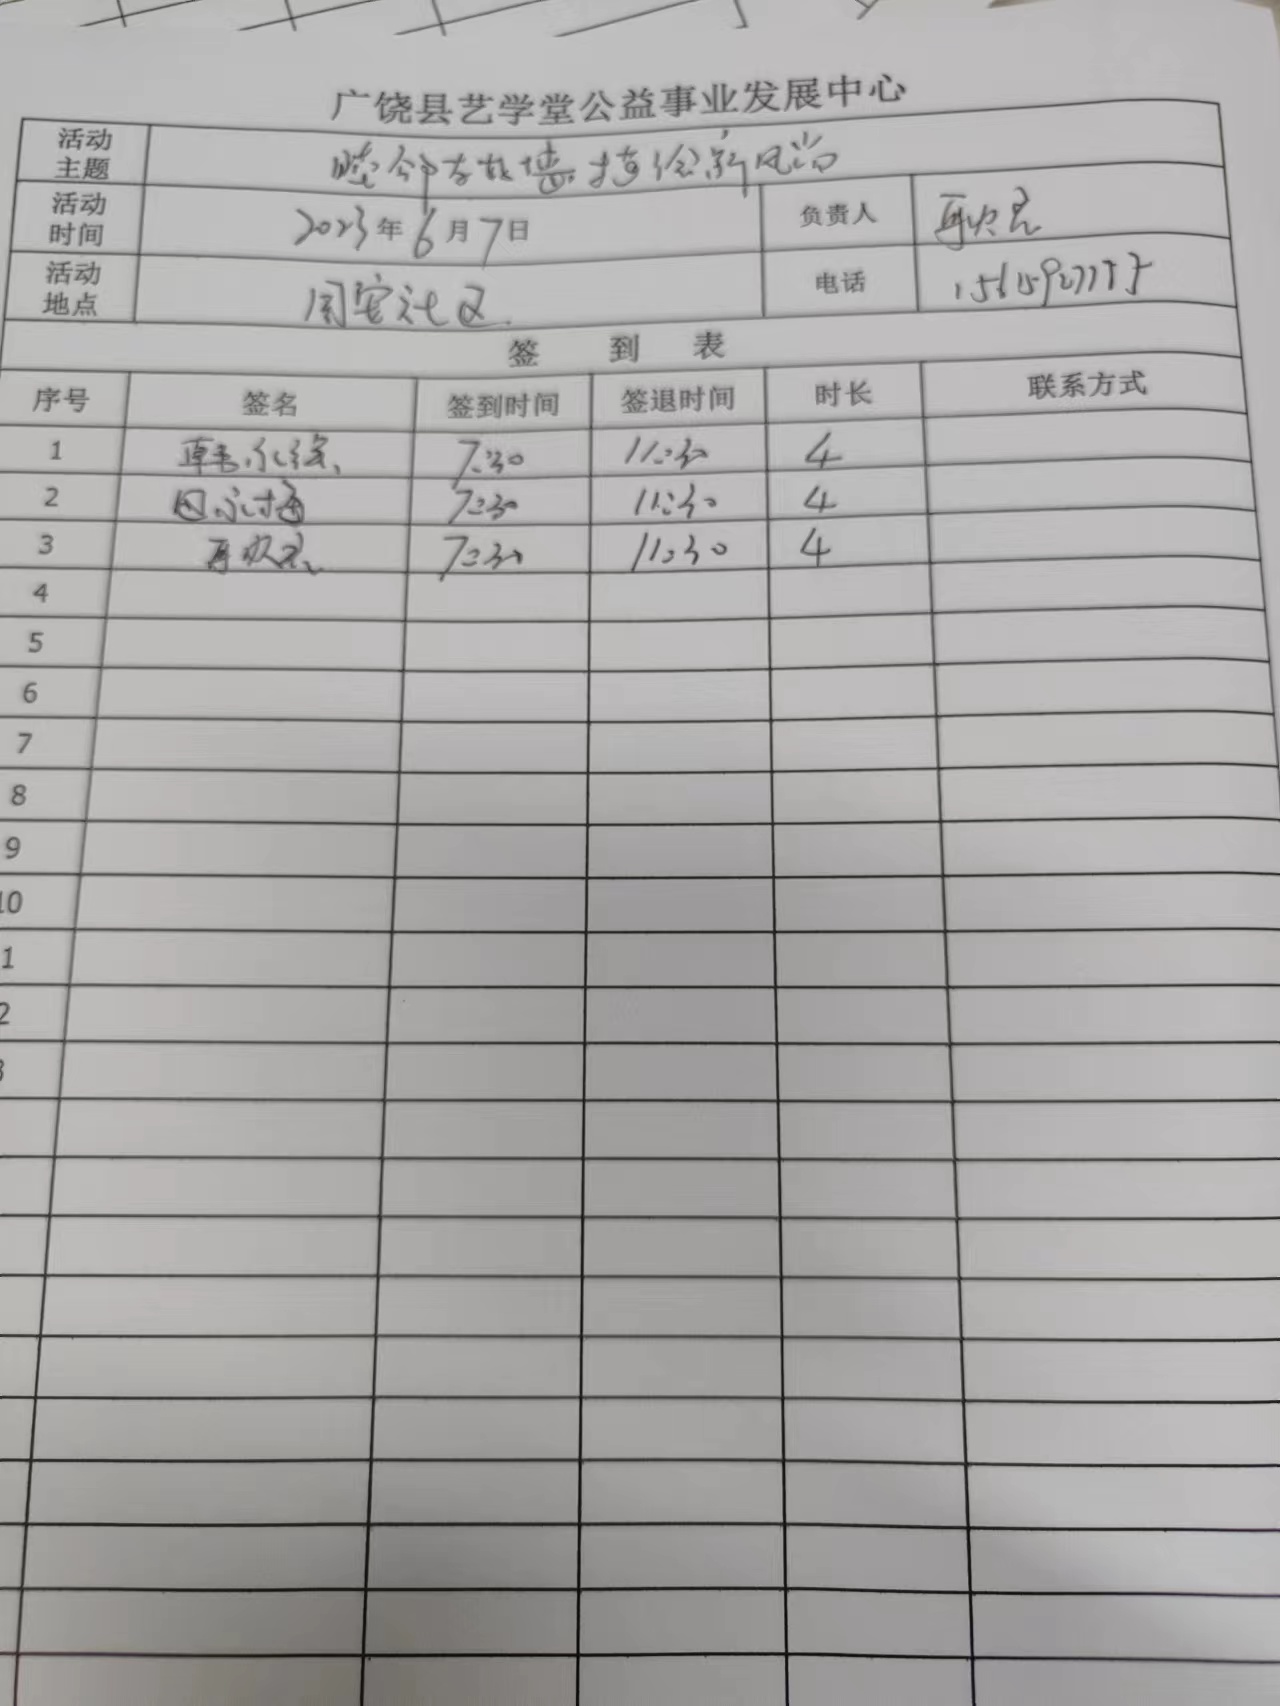 广饶县艺学堂公益事业发展中心
活动主题 墙 描绘新风尚
活动时间 2023年6月7日 负责人
活动地点 社区 电话
签 到 表
序号 签名 签到时间 签退时间 时长 联系方式
1 7:30 11:30 4
2 7:30 11:30 4
3 7:30 11:30 4
4
5
6
7
8
9
10
1
2
3